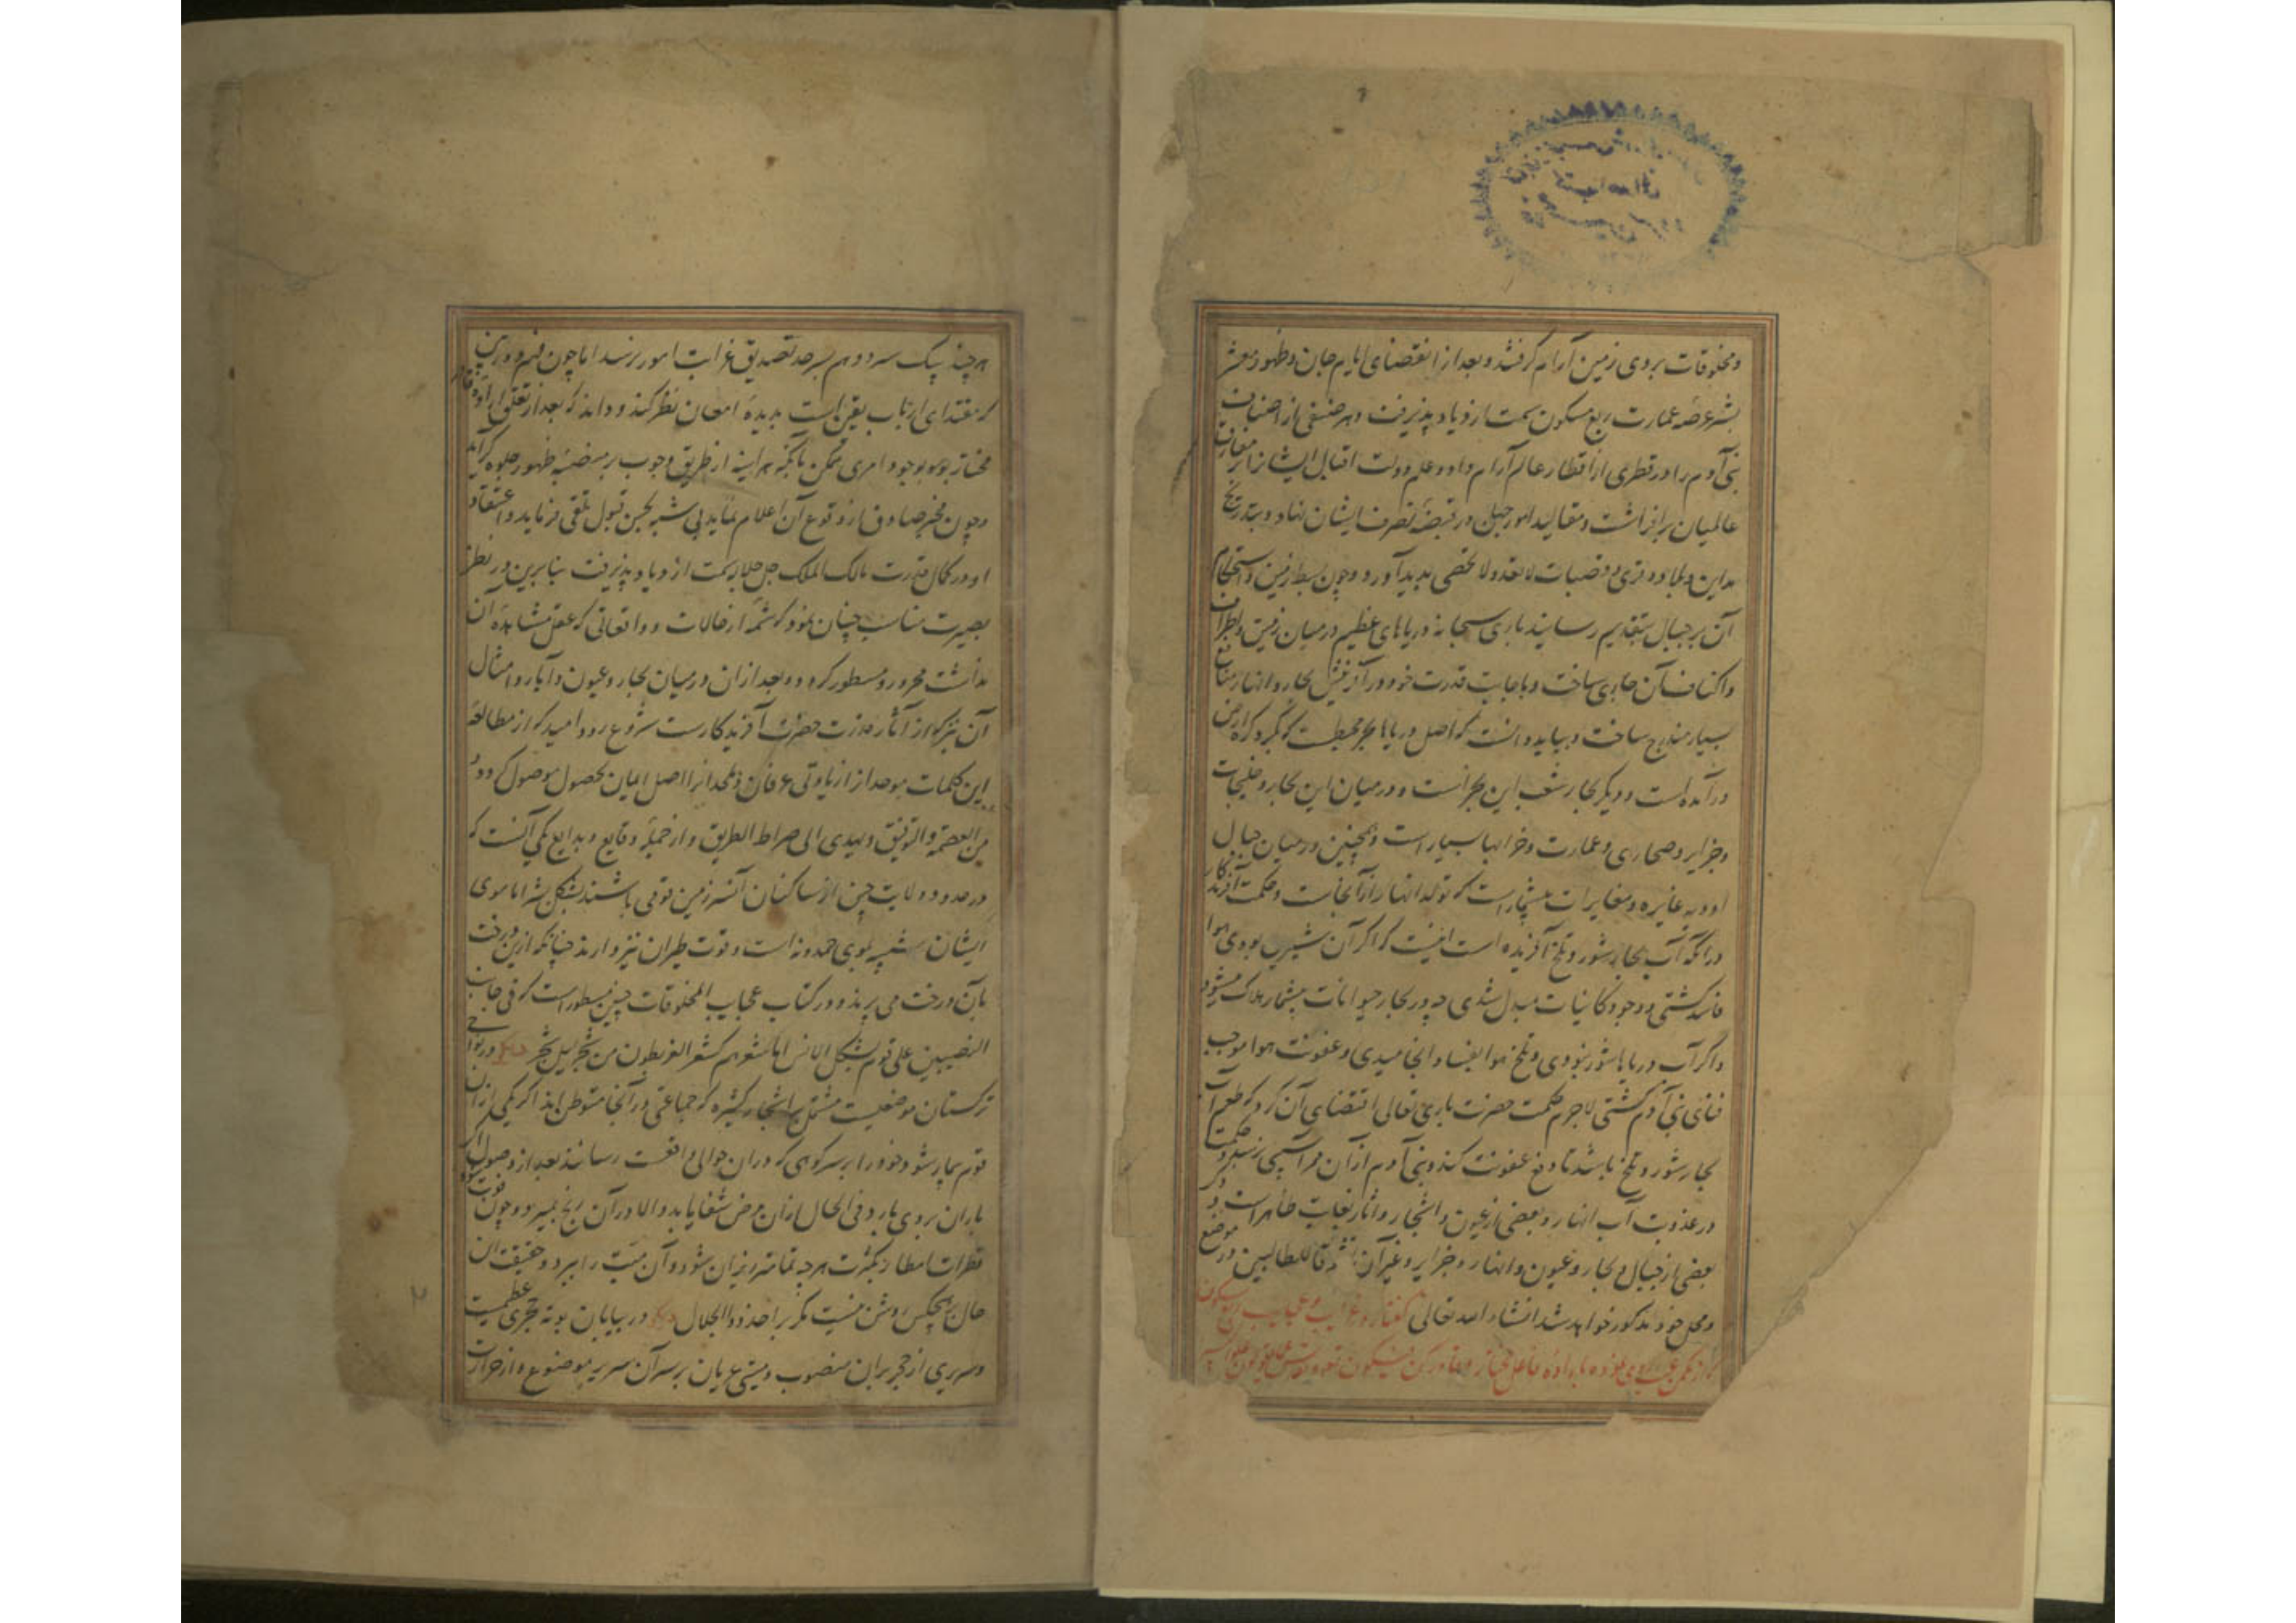 ومخلوقات بروی زمین آرام گرفتند و بعد از انقضای ایام جان و ظهور معشر
بشر عرصه عمارت ربع مسکون سمت ازدیاد پذیرفت و هر صنفی از اصناف
بنی آدم را در قطری از اقطار عالم آرام داد و علم دولت اقبال ایشان از مفارق
عالمیان برافراشت و مقالید امور جهان در قبضه تصرف ایشان نهاد و بتدریج
مداین و بلاد و قری و قصبات لا تعد و لا تحصی پدید آورد و چون بسط زمین و استحکام
آن بر جبال بتقدیم رسانید باری سبحانه دریاهای عظیم در میان زمین و اطراف
و اکناف آن جاری ساخت و باجابت قدرت خود در آفرینش بحار و انهار منافع
بسیار مندرج ساخت و بباید دانست که اصل دریاها بحر محیطست که گرد کره ارض
درآمده است و دیگر بحار شعب این بحر است و در میان این بحار و خلیجات
و جزایر و صحاری و عمارت و خرابها بسیار است و همچنین در میان جبال
اودیه غایره و مغایرات بیشمار است که تولد انهار از آنجاست و حکمت آفریدگار
در آنکه آب بحار شور و تلخ آفریده است اینست که اگر آن شیرین بودی هوا
فاسد گشتی و وجود کاینات مبدل شدی چه در بحار حیوانات بیشمار هلاک میشود
و اگر آب دریاها شور نبودی و تلخ هوا بفساد انجامیدی و عفونت هوا موجب
فنای بنی آدم گشتی لاجرم حکمت حضرت باری تعالی اقتضای آن کرد که طعم آب
بحار شور و تلخ باشد تا دفع عفونت کند و بنی آدم از آن هوا آسیبی نرسد و حکمت
در عذوبت آب انهار و بعضی از عیون و اشجار و اثمار بغایت ظاهر است و ذکر
بعضی از جبال و بحار و عیون و انهار و جزایر و غیر آن للطالبین در موضع
و محل خود مذکور خواهد شد انشاء الله تعالی گفتار در غرایب و عجایب ربع مسکون
که از مکمن غیب روی نموده باراده فاعل مختار و قادر کن فیکون
هر چند پیک سر و وهم بسرحد تصدیق غرابت امور نرسد اما چون فهم دوربین
که مقتدای ارباب یقین است بدیده امعان نظر کند و داند که بعد از تعلق اراده قادر
مختار بوجود امری ممکن بالگنه هر آینه از طریق وجوب بر منصه ظهور جلوه گر آید
و چون مخبر صادق از وقوع آن اعلام نماید بی شبه بحسن قبول تلقی فرماید و اعتقاد
او در کمال قدرت مالک الملک جل جلاله سمت ازدیاد پذیرفت بنابرین در نظر
بصیرت مناسب چنان نمود که شمه از حالات و واقعاتی که عقل مشاهده آن
نداشت محرر و مسطور گردد و بعد از آن در میان بحار و عیون و آبار و امثال
آن نیز که از آثار قدرت حضرت آفریدگارست شروع رود امید که از مطالعه
این کلمات موحد از ازیادتی عرفان و ملحد را اصل ایمان بحصول موصول گردد
من العصمة والتوفیق و یهدی الی صراط الطریق و از جمله وقایع و بدایع یکی آنست که
در حدود ولایت چین از ساکنان آنسرزمین قومی باشند بشکل بشر اما موی
ایشان شبیه بموی حمدونه است و قوت طیران نیز دارند چنانکه ازین درخت
بآن درخت می پرند و در کتاب عجایب المخلوقات چنین مسطور است که فی جانب
النصیبین علی قوم بشکل الانس اما شعرهم کشعر الغ یطون من شجر الی شجر دیگر در نواحی
ترکستان موضعیست مشتمل بر اشجار کثیره که جماعتی در آنجا متوطن اند اگر یکی از آن
قوم بیمار شود خود را بر سر کوهی که در آن حوالی واقعست رسانند بعد از وصول اگر
باران بروی بارد فی الحال از آن مرض شفا یابد و الا در آن رنج بمیرد و چون فوت شود
قطرات امطار بکثرت هر چه تمامتر ریزان شود و آن میت را ببرد و حقیقت آن
حال بر هیچکس روشن نیست مگر بر احد ذو الجلال دیگر در بیابان بوته حجری عظیمست
و سریری از حجر بر آن منصوب و میتی عریان بر سر آن سریر موضوع و از حرارت